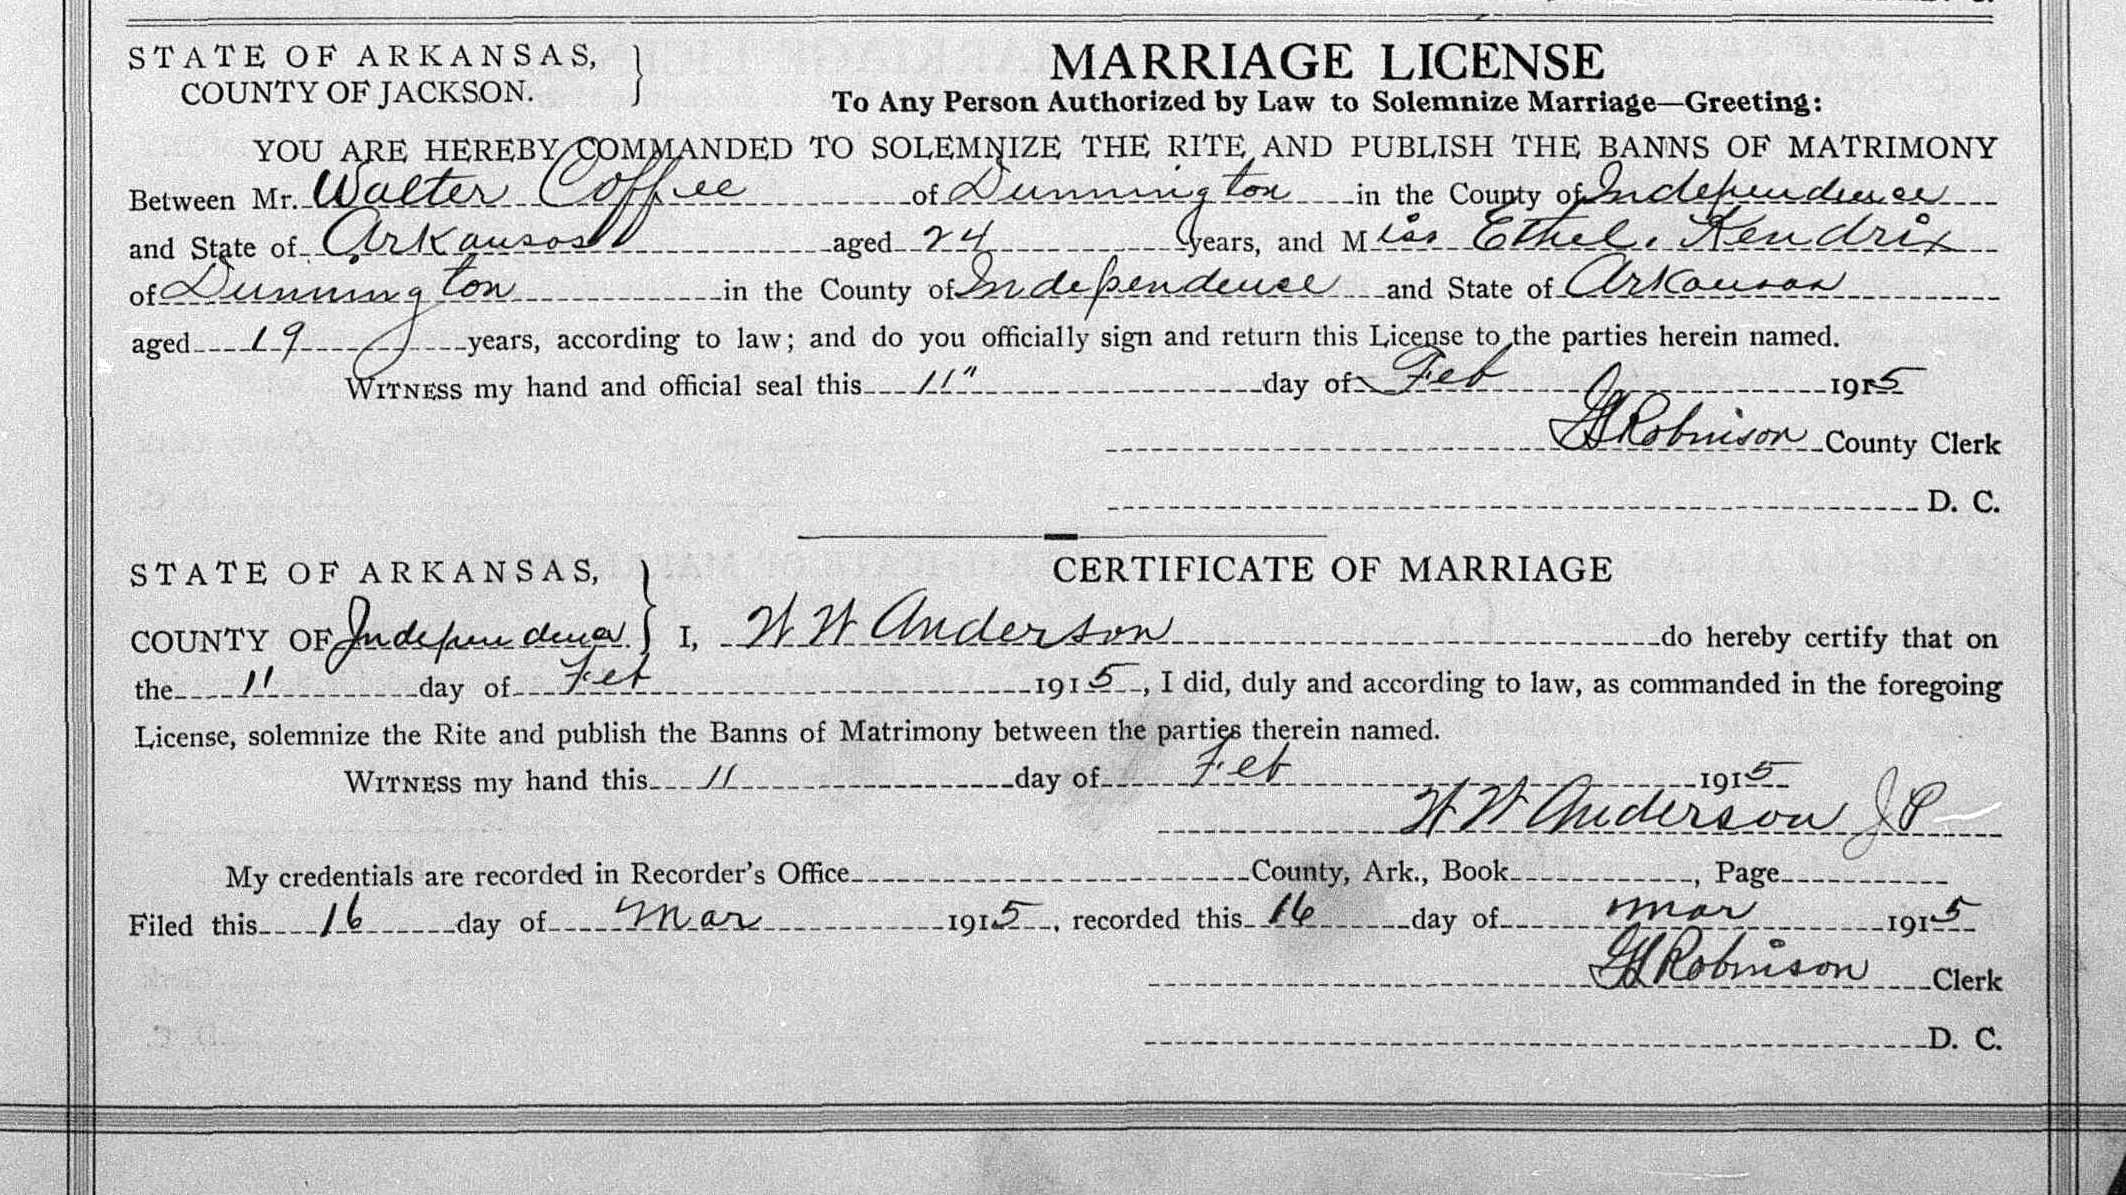 STATE OF ARKANSAS,
COUNTY OF JACKSON.
MARRIAGE LICENSE
To Any Person Authorized by Law to Solemnize Marriage—Greeting:
YOU ARE HEREBY COMMANDED TO SOLEMNIZE THE RITE AND PUBLISH THE BANNS OF MATRIMONY
Between Mr. Walter Coffee of Dunnington in the County of Independence
and State of Arkansas aged 24 years, and Miss Ethel. Kendrix
of Dunnington in the County of Independence and State of Arkansas
aged 19 years, according to law; and do you officially sign and return this License to the parties herein named.
WITNESS my hand and official seal this 11" day of Feb 1915
Robinson County Clerk
D. C.
STATE OF ARKANSAS,
CERTIFICATE OF MARRIAGE
COUNTY OF Independence I, W W Anderson do hereby certify that on
the 11 day of Feb 1915, I did, duly and according to law, as commanded in the foregoing
License, solemnize the Rite and publish the Banns of Matrimony between the parties therein named.
WITNESS my hand this 11 day of Feb 1915
W W Anderson J P
My credentials are recorded in Recorder's Office County, Ark., Book , Page
Filed this 16 day of Mar 1915, recorded this 16 day of Mar 1915
Robinson Clerk
D. C.